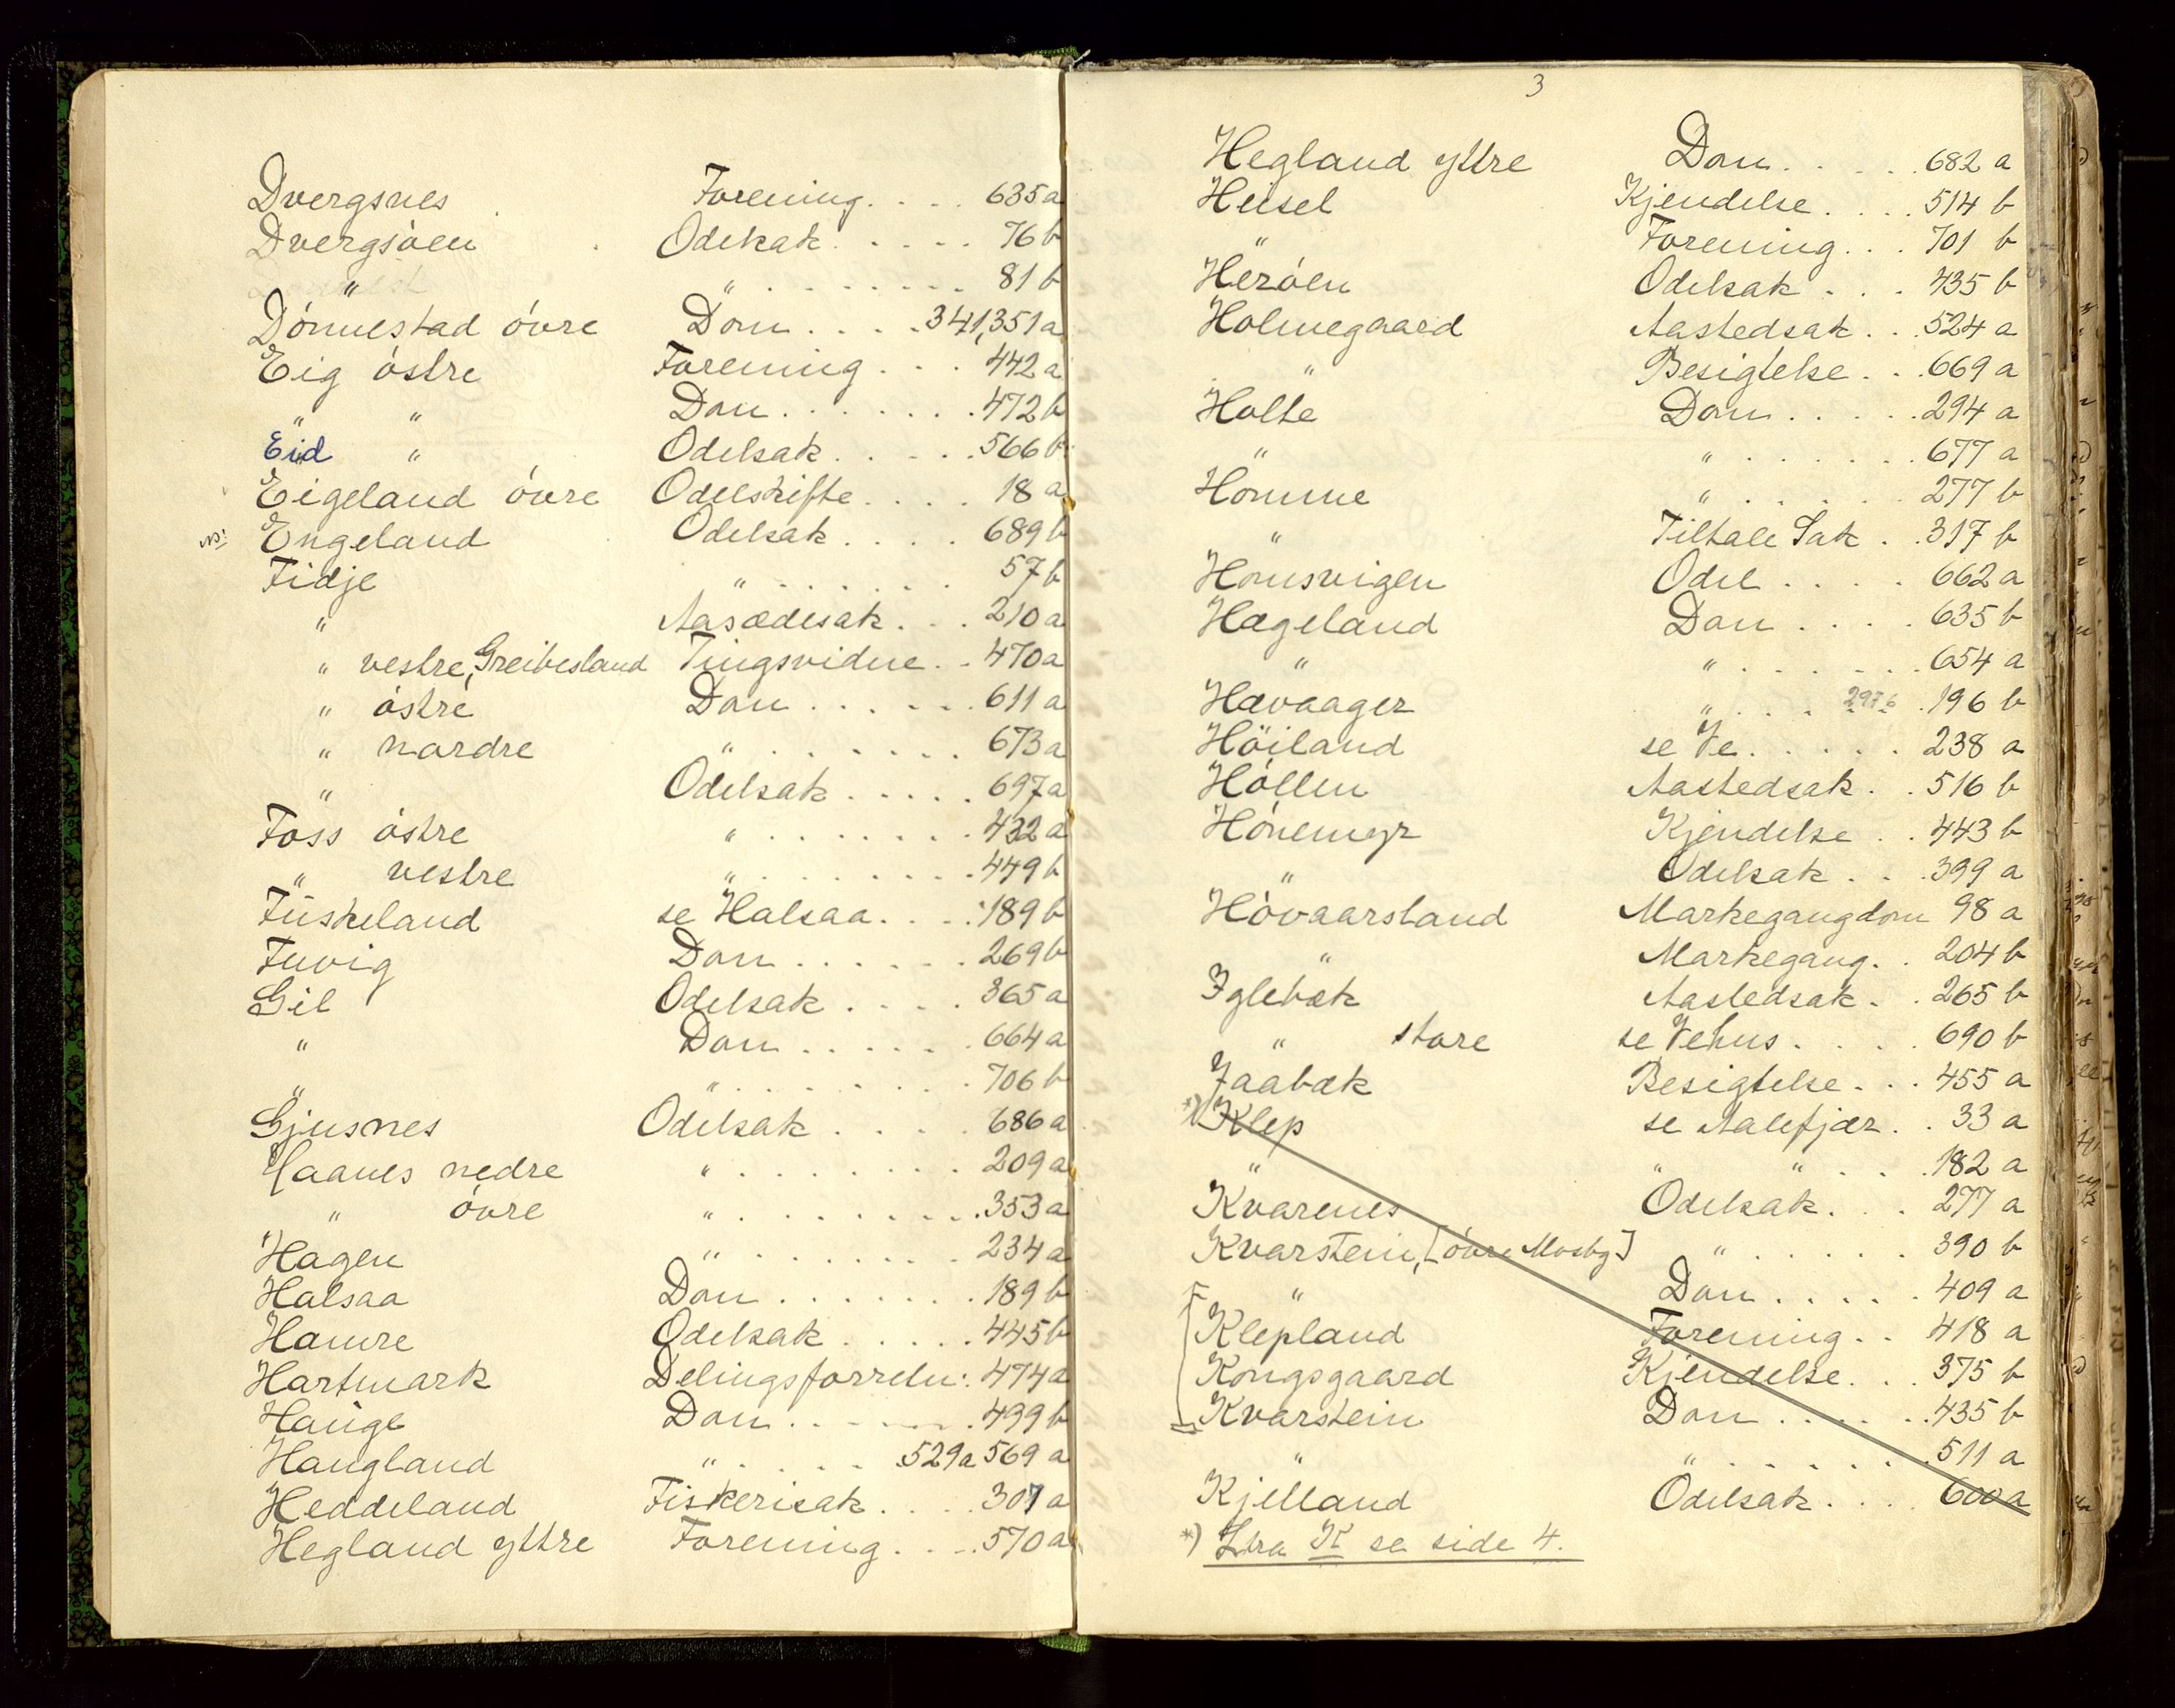 Dvergsnes Forening. . . . 635 a
Dvergsöen Odelsak. . . . . 76 b
" " . . . . . . . . 81 b
Dönnestad övre Dom . . . . 341,351 a
Eig östre Forening . . . 442 a
" " Dom . . . . . . . 472 b
Eid " Odelsak. . . . . 566 b
Eigeland övre Odelskifte. . . . 18 a
Engeland Odelsak . . . . 689 b
Fidje " . . . . . . . 57 b
" Aasædesak. . . 210 a
" vestre, Greibesland Tingsvidne. . 470 a
" östre Dom . . . . . . 611 a
" nordre " . . . . . . . 673 a
" Odelsak . . . . . 697 a
Foss östre " . . . . . . . 432 a
" vestre " . . . . . . . . 449 b
Fuskeland se Halsaa. . . . 189 b
Fuvig Dom . . . . . . 269 b
Gil Odelsak . . . . 365 a
" Dom . . . . . 664 a
" " . . . . . . . . 706 b
Gjusnes Odelsak . . . . 686 a
Haanes nedre " . . . . . . . . 209 a
" övre " . . . . . . . . 353 a
Hagen " . . . . . . . 234 a
Halsaa Dom . . . . . . . 189 b
Hamre Odelsak . . . . . 445 b
Hartmark Delingsforretn: 474 a
Hauge Dom . . . . . . 499 b
Haugland " . . . . . 529 a 569 a
Heddeland Fiskerisak . . . . 307 a
Hegland yttre Forening . . . 570 a
3
Hegland yttre Dom . . . . . 682 a
Heisel Kjendelse . . . . 514 b
" Forening. . . 701 b
Heröen Odelsak . . . 435 b
Holmegaard Aastedsak. . 524 a
" Besigtelse. . . 669 a
Holte Dom . . . . . 294 a
" " . . . . . . . 677 a
Homme " . . . . . . 277 b
" Tiltale Sak . . 317 b
Homsvigen Odel . . . . 662 a
Hægeland Dom . . . . 635 b
" " . . . . . . . 654 a
Hævaager " . . . 297 b . 196 b
Höiland se Ve. . . . . 238 a
Höllen Aastedsak. . 516 b
Hönemyr Kjendelse . . 443 b
" Odelsak . . . 399 a
Hövaarsland Markegangdom 98 a
" Markegang. . 204 b
Iglebæk Aastedsak. . 265 b
" store se Vehus . . . . 690 b
Jaabæk Besigtelse. . . 455 a
*) Klep se Aalefjær. . 33 a
" " " . . . 182 a
Kvarenes Odelsak. . . 277 a
Kvarstein, [övre Mosby] " . . . . . . 390 b
" Dom . . . . . 409 a
Klepland Forening. . 418 a
Kongsgaard Kjendelse. . . 375 b
Kvarstein Dom . . . . . 435 b
" " . . . . . . . 511 a
Kjelland Odelsak. . . . 600 a
*) Ltra K se side 4.